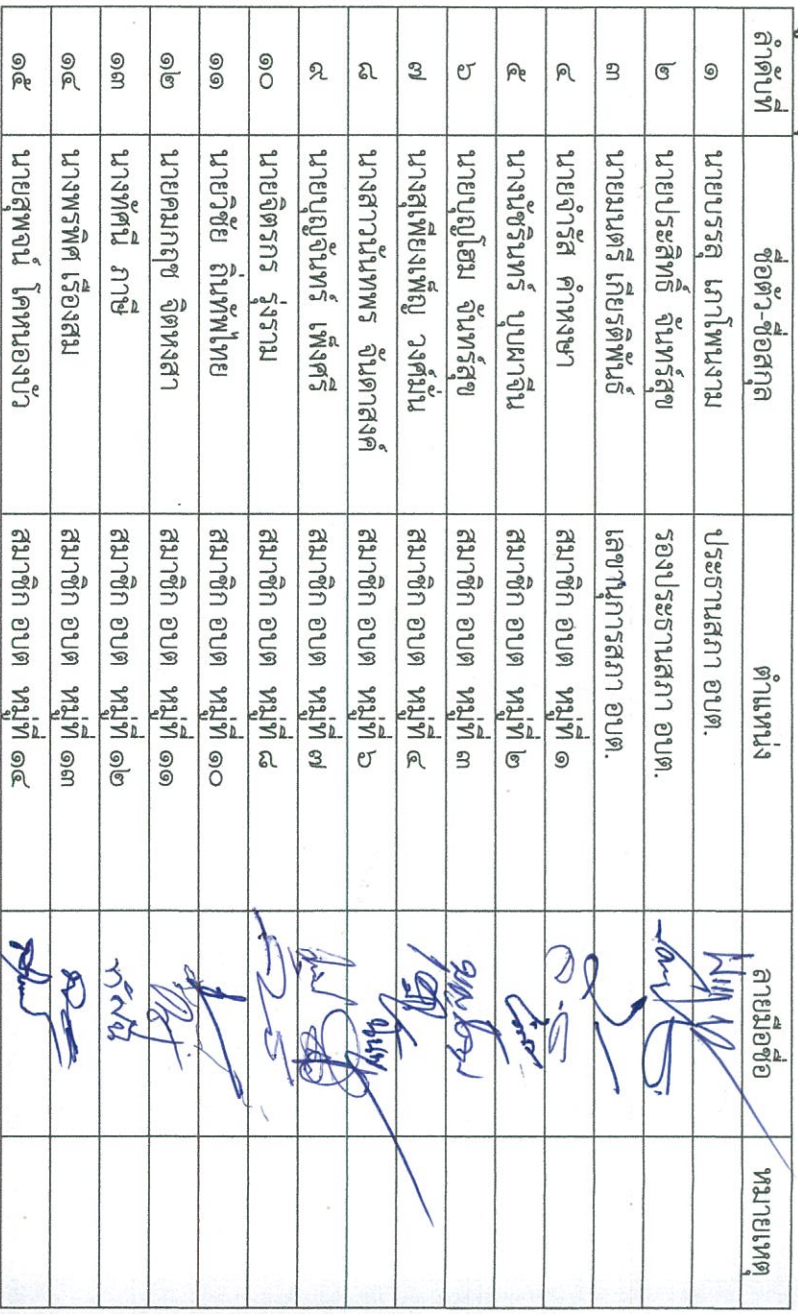 ลำดับที่ ชื่อตัว-ชื่อสกุล ตำแหน่ง ลายมือชื่อ หมายเหตุ
๑ นายบรรลุ เถาโพนงาม ประธานสภา อบต.
๒ นายประสิทธิ์ จันทร์สุข รองประธานสภา อบต.
๓ นายมนตรี เกียรติพันธ์ เลขานุการสภา อบต.
๔ นายจำรัส คำหงษา สมาชิก อบต หมู่ที่ ๑
๕ นางนัชรินทร์ บุบผาจีน สมาชิก อบต หมู่ที่ ๒
๖ นายบุญโฮม จันทร์สุข สมาชิก อบต หมู่ที่ ๓ บุญโฮม
๗ นางสุเพียงเพ็ญ วงศ์มั่น สมาชิก อบต หมู่ที่ ๔
๘ นางสาวนันทพร จันดาสงค์ สมาชิก อบต หมู่ที่ ๖
๙ นายบุญจันทร์ เพ็งศรี สมาชิก อบต หมู่ที่ ๗
๑๐ นายจิตรกร รุ่งราม สมาชิก อบต หมู่ที่ ๘
๑๑ นายวิชัย ถิ่นทัพไทย สมาชิก อบต หมู่ที่ ๑๐
๑๒ นายคมกฤช จิตหงสา สมาชิก อบต หมู่ที่ ๑๑
๑๓ นางทัศนี ภาษี สมาชิก อบต หมู่ที่ ๑๒ ทัศนี
๑๔ นางพรพิศ เรืองสม สมาชิก อบต หมู่ที่ ๑๓
๑๕ นายสุพจน์ โคหนองบัว สมาชิก อบต หมู่ที่ ๑๔